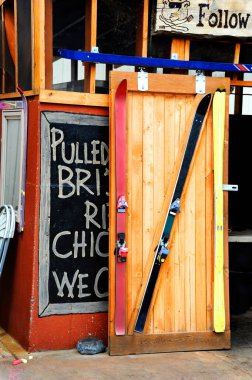 Follow
PULLED
BRI
RI
CHIC
WE C